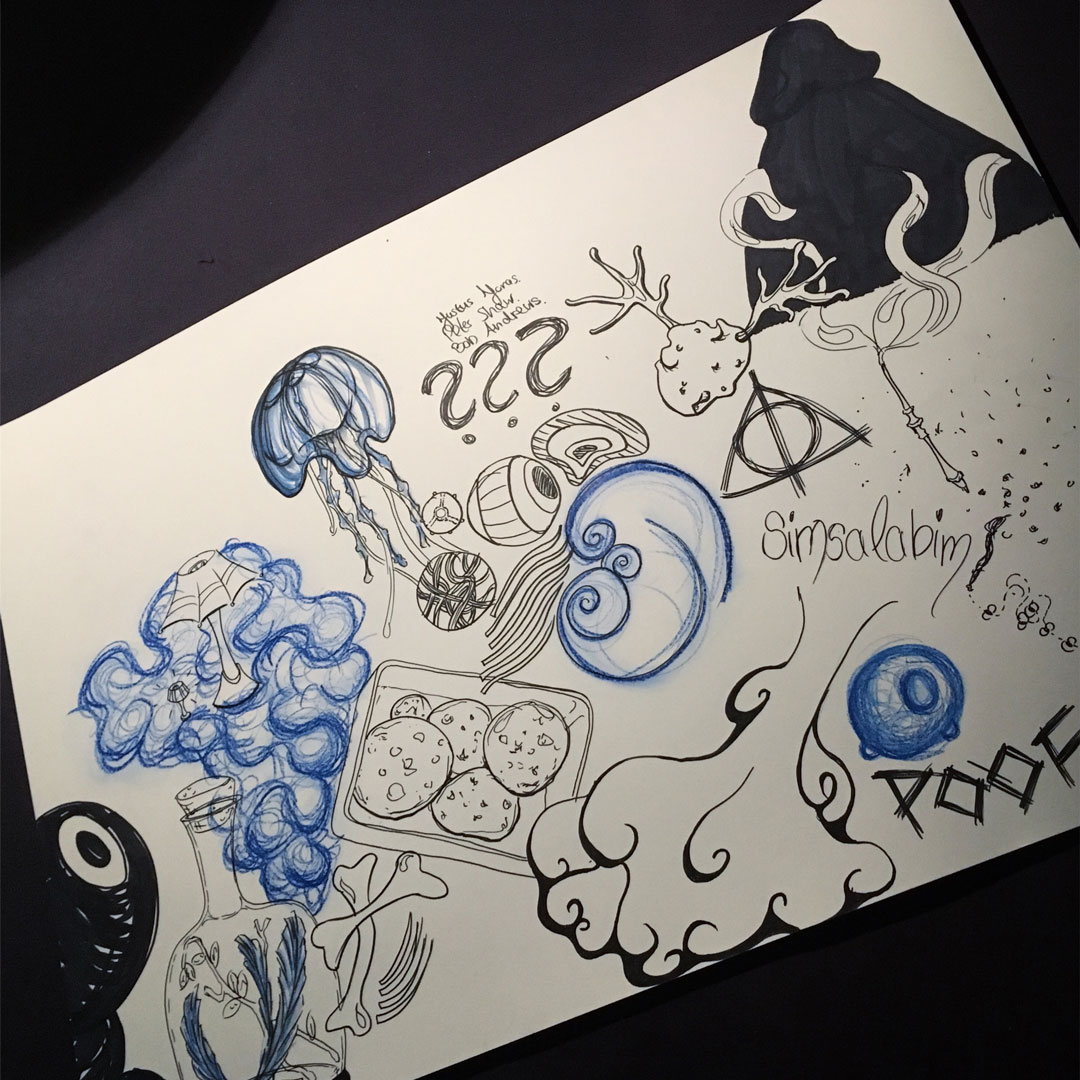 Justus Jonas.
Peter Shaw.
Bob Andrews.
???
Simsalabim
POOF